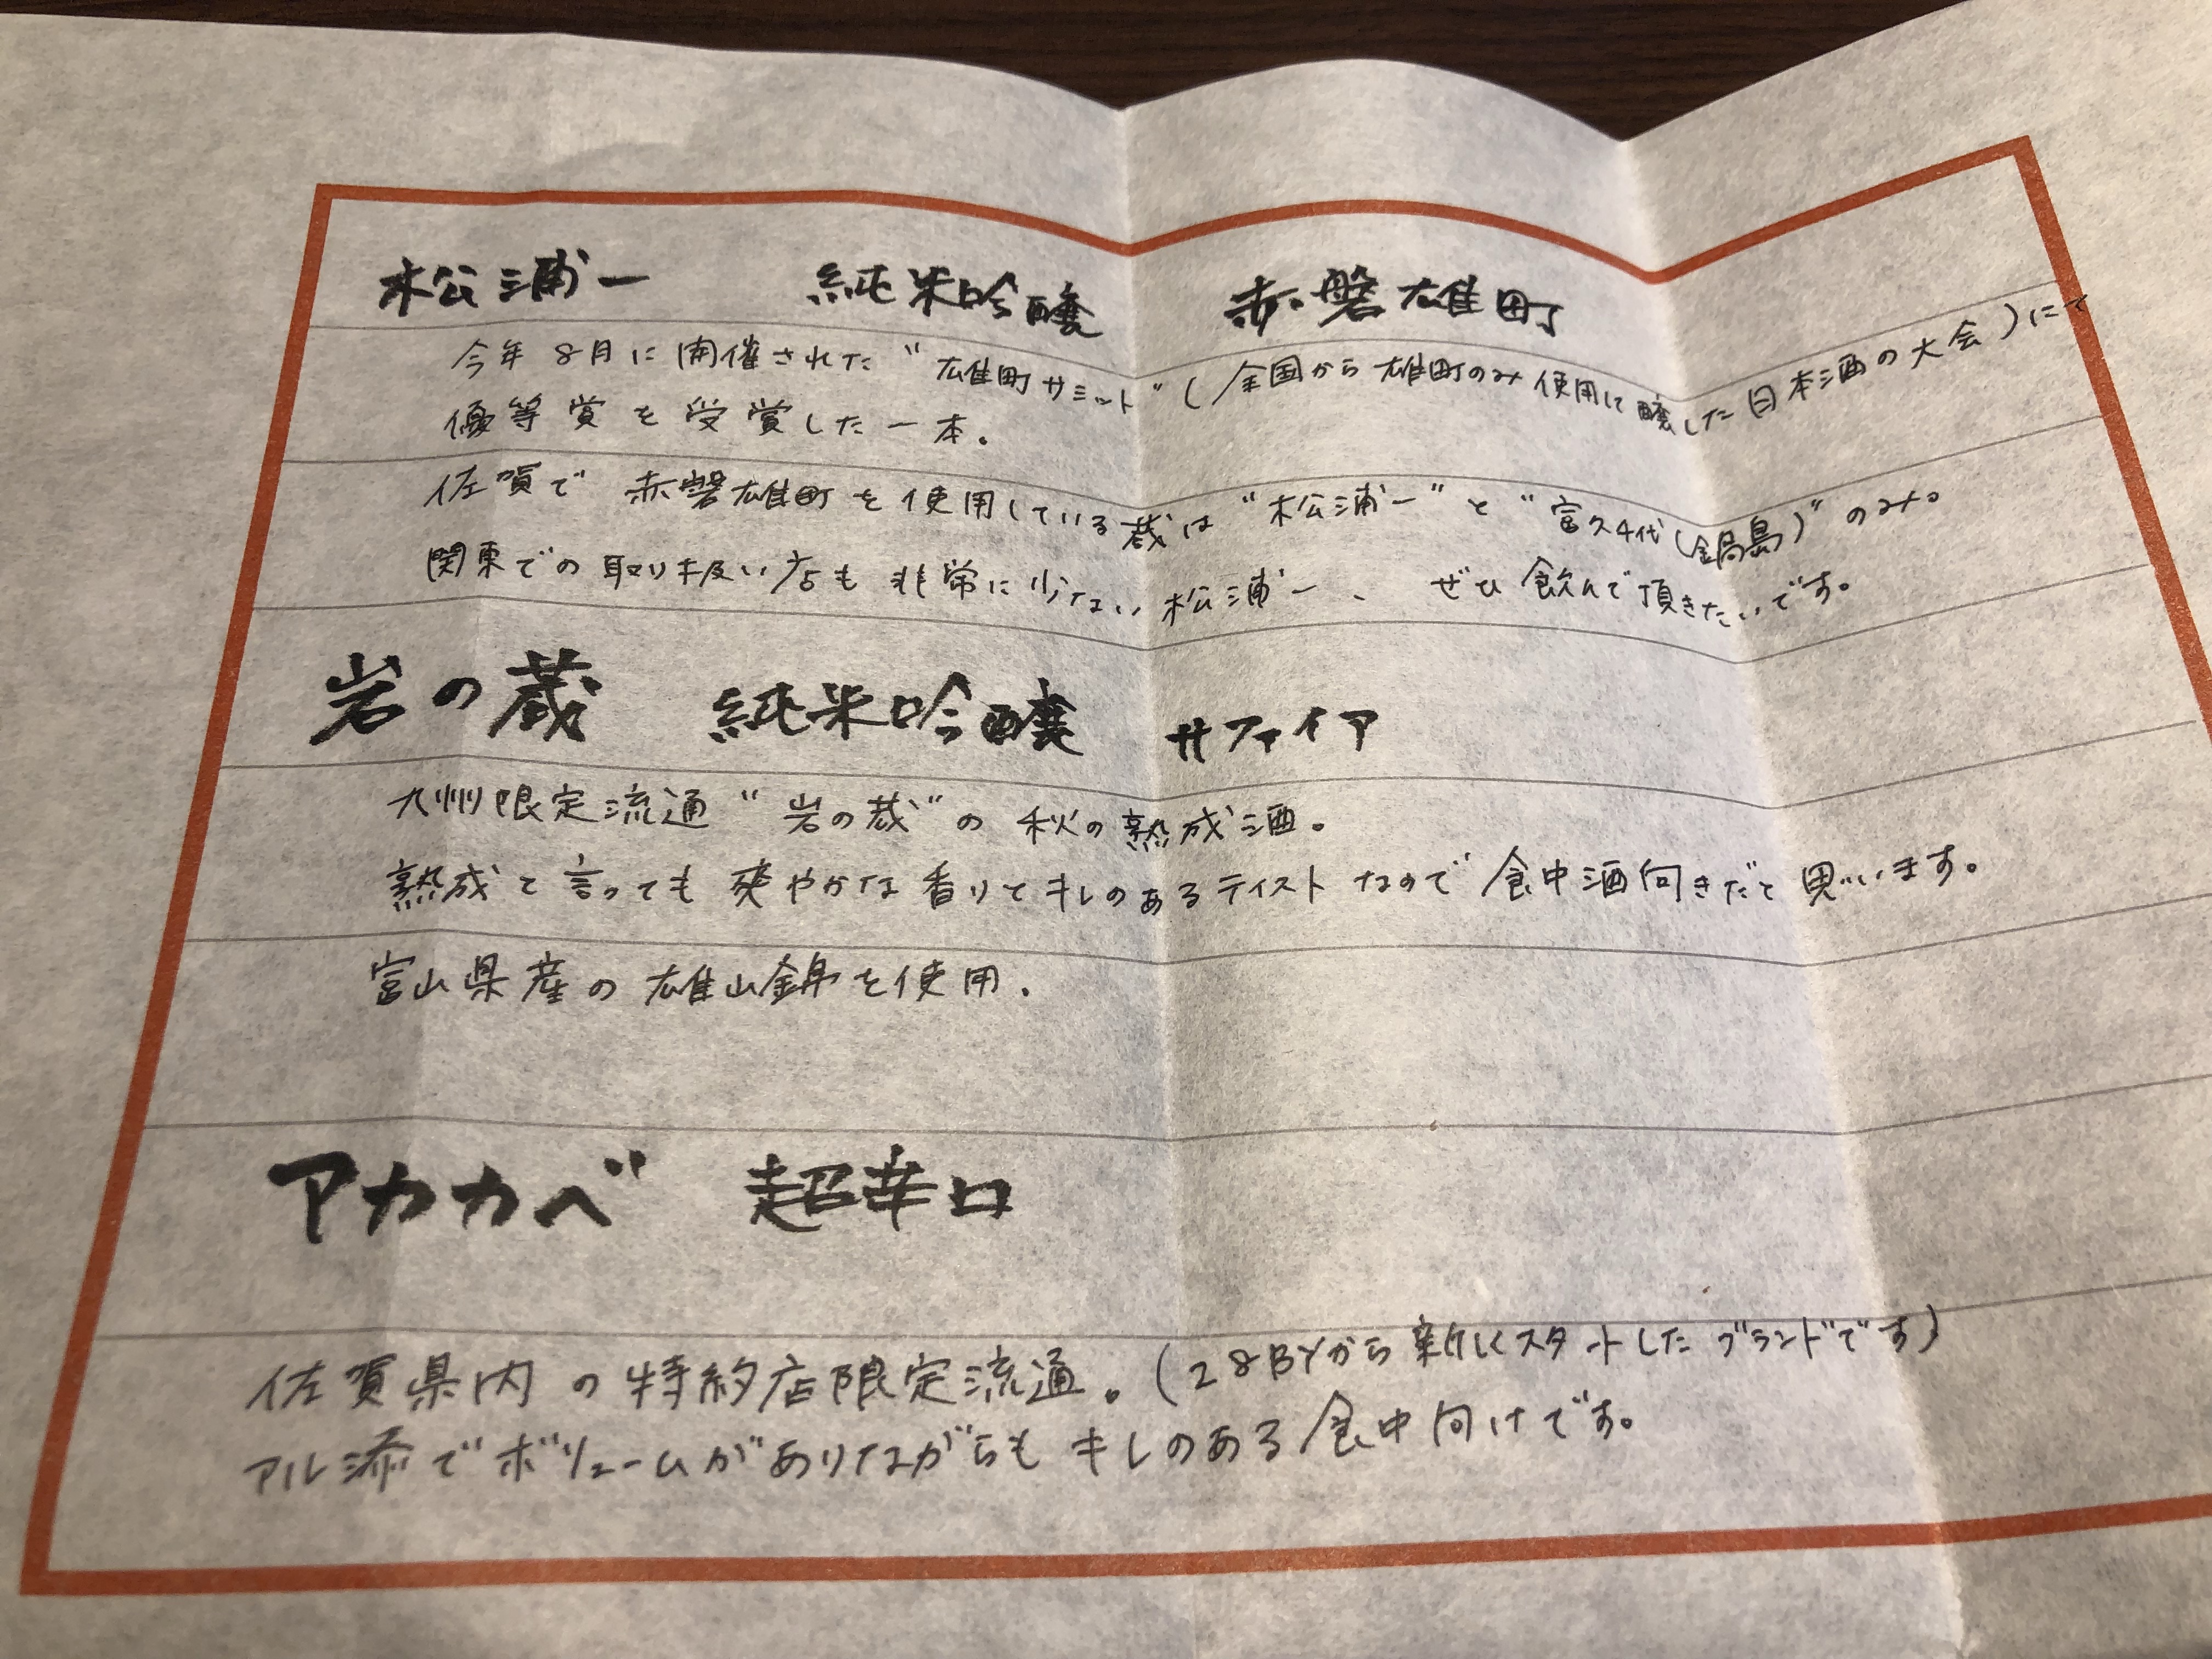 松浦一 純米吟醸 赤磐雄町
今年8月に開催された"雄町サミット"(全国から雄町のみ使用して醸した日本酒の大会)にて
優等賞を受賞した一本.
佐賀で赤磐雄町を使用している蔵は"松浦一"と"富久千代(鍋島)"のみ。
関東での取り扱い店も非常に少ない松浦一、ぜひ飲んで頂きたいです。
岩の蔵 純米吟醸 サファイア
九州限定流通"岩の蔵"の秋の熟成酒。
熟成と言っても爽やかな香りとキレのあるテイストなので食中酒向きだと思います。
富山県産の雄山錦を使用.
アカカベ 超辛口
佐賀県内の特約店限定流通。(28BYから新しくスタートしたブランドです)
アル添でボリュームがありながらもキレのある食中向けです。